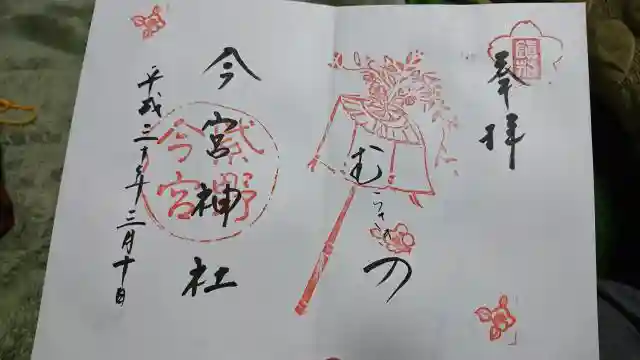 奉拝
むらさきの
今宮神社
紫野
今宮
平成三十年三月十日